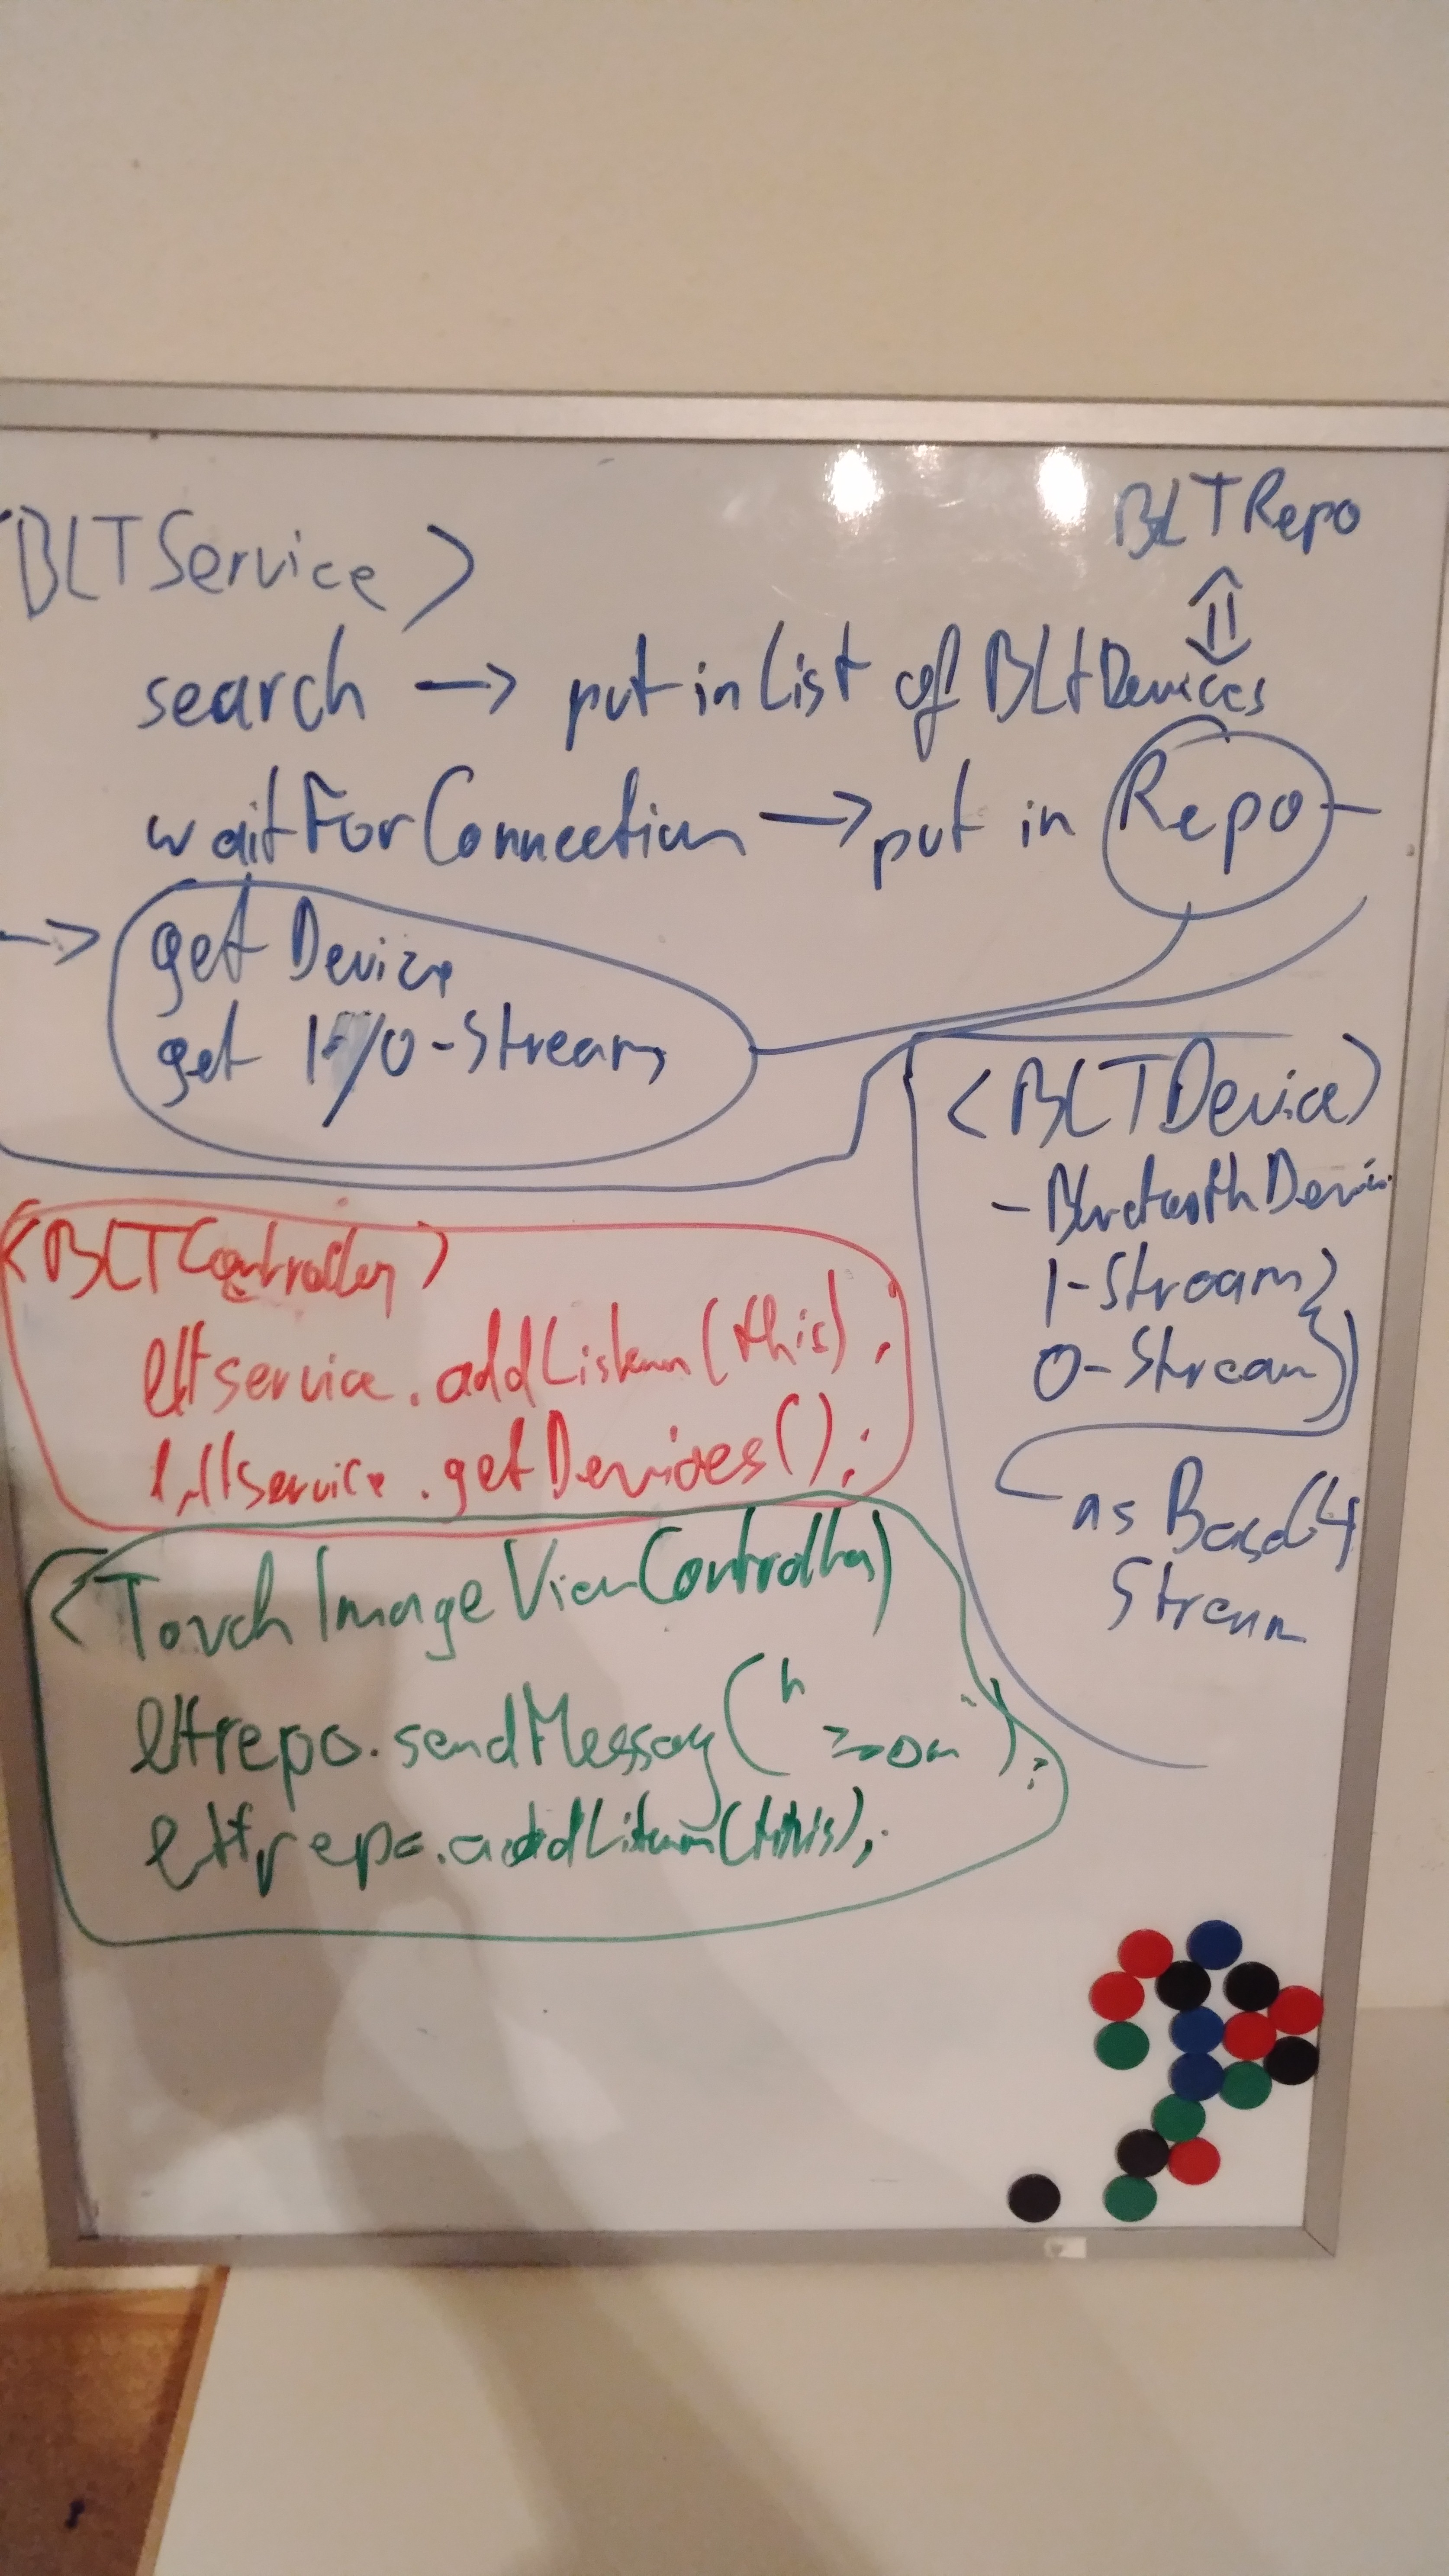 BLTRepo
<BLTService>
search -> put in list of BLtDevices
waitForConnection -> put in Repo
-> get Device
get I/O-Stream
<BLTDevice>
- Bluetooth Device
I-Stream
O-Stream
as Base64
Stream
<BLTController>
bltservice.addListener(this);
bltservice.getDevices();
<TouchImageViewController>
bltrepo.sendMessage("zoom");
bltrepo.addListener(this);